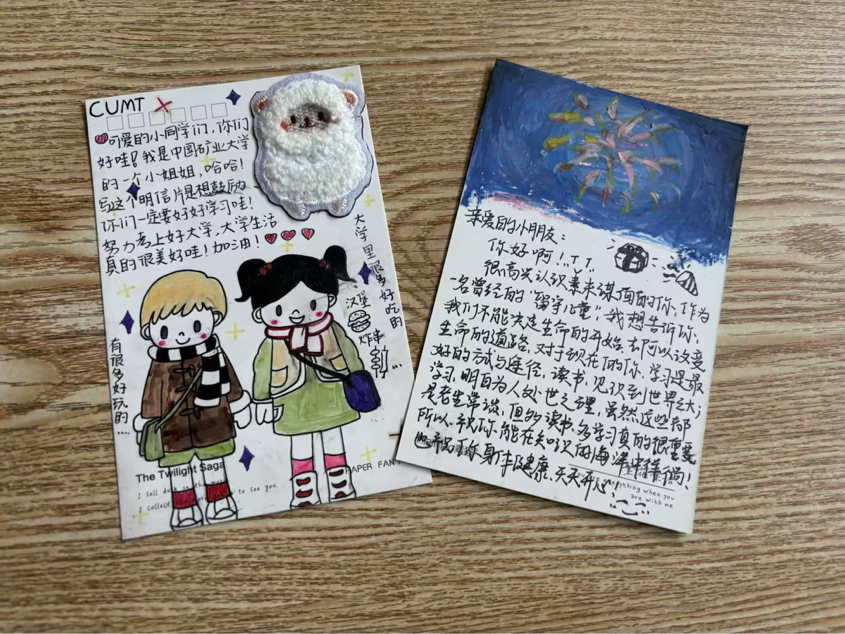 CUMT
可爱的小同学们,你们
好哇!我是中国矿业大学
的一个小姐姐,哈哈!
写这个明信片是想鼓励
你们一定要好好学习哇!
努力考上好大学,大学生活
真的很美好哇!加油!
大学里很多好吃的
汉堡
炸串
...
有很多好玩的....
The Twilight Saga
I sell
to see you.
I collect
PAPER FAN
亲爱的小朋友:
你好啊!
很高兴认识素未谋面的你,作为
一名曾经的"留守儿童",我想告诉你,
我们不能决定生命的开始,却可以改变
生命的道路,对于现在的你,学习是最
好的方式与途径,读书,见识到世界之大;
学习,明白为人处世之理,虽然这些都
是老生常谈,但多读书、多学习真的很重要
所以,祝你能在知识的海洋中徜徉!
也祝你身体健康,天天开心!
anything when you
are with me